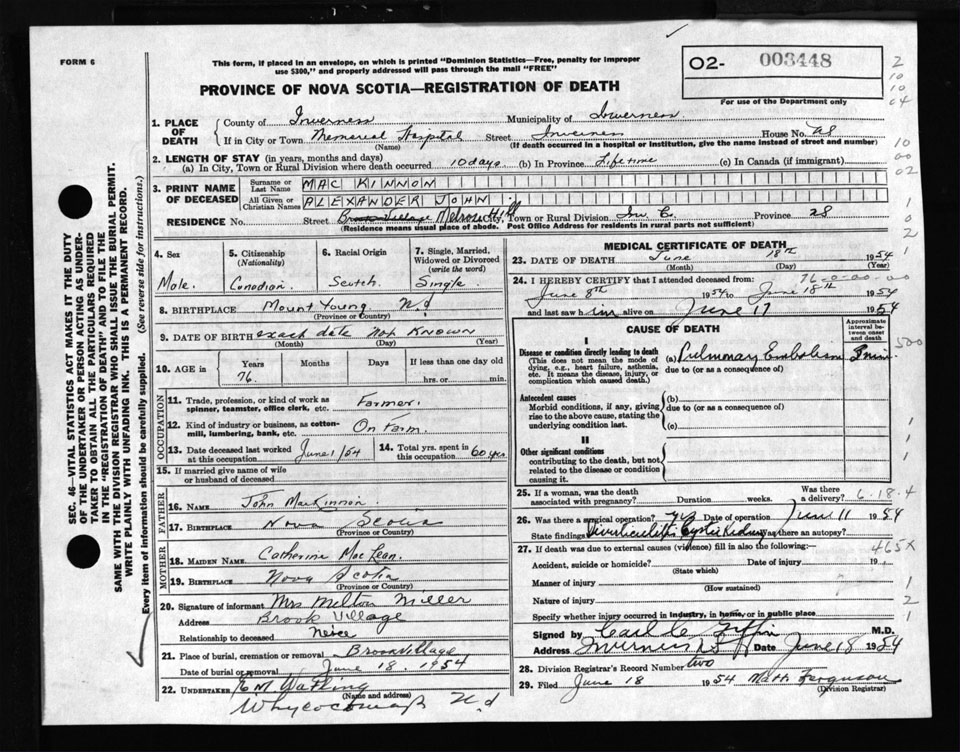 FORM 6
This form, if placed in an envelope, on which is printed "Dominion Statistics—Free, penalty for improper
use $300," and properly addressed will pass through the mail "FREE"
O2- 003448
For use of the Department only
2
10
10
04
PROVINCE OF NOVA SCOTIA—REGISTRATION OF DEATH
1. PLACE OF DEATH
County of Inverness Municipality of Inverness
If in City or Town Memorial Hospital Street Inverness House No.
(Name) (If death occurred in a hospital or institution, give the name instead of street and number)
10
00
02
2. LENGTH OF STAY (in years, months and days)
(a) In City, Town or Rural Division where death occurred 10 days (b) In Province Lifetime (c) In Canada (if immigrant)
3. PRINT NAME OF DECEASED
Surname or Last Name MAC KINNON
All Given or Christian Names ALEXANDER JOHN
RESIDENCE No. Street Brook Village Melrose Hill City, Town or Rural Division Inv C. Province 28
(Residence means usual place of abode. Post Office Address for residents in rural parts not sufficient)
4. Sex Male.
5. Citizenship (Nationality) Canadian.
6. Racial Origin Scotch
7. Single, Married, Widowed or Divorced (write the word) Single.
8. BIRTHPLACE Mount Young N.S
(Province or Country)
9. DATE OF BIRTH exact date not KNOWN
(Month) (Day) (Year)
10. AGE in Years 76. Months Days If less than one day old hrs. or min.
OCCUPATION
11. Trade, profession, or kind of work as spinner, teamster, office clerk, etc. Farmer.
12. Kind of industry or business, as cotton-mill, lumbering, bank, etc. On Farm.
13. Date deceased last worked at this occupation June 1/54
14. Total yrs. spent in this occupation 60 yrs
15. If married give name of wife or husband of deceased
FATHER
16. NAME John MacKinnon.
17. BIRTHPLACE Nova Scotia
(Province or Country)
MOTHER
18. MAIDEN NAME Catherine MacLean.
19. BIRTHPLACE Nova Scotia
(Province or Country)
20. Signature of informant Mrs Melton Miller
Address Brook Village
Relationship to deceased Neice
21. Place of burial, cremation or removal Brook Village
Date of burial or removal June 18, 1954
22. UNDERTAKER Watling
(Name and address)
Whycocomagh N.S
MEDICAL CERTIFICATE OF DEATH
23. DATE OF DEATH June 18th 1954
(Month) (Day) (Year)
24. I HEREBY CERTIFY that I attended deceased from: 76-0-00-00
June 8th 1954 to June 18th 1954
and last saw him alive on June 17 1954
CAUSE OF DEATH
Approximate interval between onset and death
I
Disease or condition directly leading to death
(This does not mean the mode of dying, e.g., heart failure, asthenia, etc. It means the disease, injury, or complication which caused death.)
(a) Pulmonary Embolism 5 min.
due to (or as a consequence of)
500
Antecedent causes
Morbid conditions, if any, giving rise to the above cause, stating the underlying condition last.
(b)
due to (or as a consequence of)
(c)
II
Other significant conditions
contributing to the death, but not related to the disease or condition causing it.
25. If a woman, was the death associated with pregnancy? Duration weeks. Was there a delivery? 6-18-4
26. Was there a surgical operation? yes Date of operation June 11 1954
State findings Diverticulitis, Cystic Kidney Was there an autopsy?
27. If death was due to external causes (violence) fill in also the following:— 465X
Accident, suicide or homicide? Date of injury 19
(State which)
Manner of injury
(How sustained)
Nature of injury
Specify whether injury occurred in industry, in home, or in public place
Signed by M.D.
Address Inverness NS Date June 18 1954
28. Division Registrar's Record Number two
29. Filed June 18 1954 Ferguson
(Division Registrar)
SEC. 46—VITAL STATISTICS ACT MAKES IT THE DUTY
OF THE UNDERTAKER OR PERSON ACTING AS UNDER-
TAKER TO OBTAIN ALL THE PARTICULARS REQUIRED
IN THE "REGISTRATION OF DEATH" AND TO FILE THE
SAME WITH THE DIVISION REGISTRAR WHO SHALL ISSUE THE BURIAL PERMIT.
WRITE PLAINLY WITH UNFADING INK. THIS IS A PERMANENT RECORD.
Every item of information should be carefully supplied. (See reverse side for instructions.)